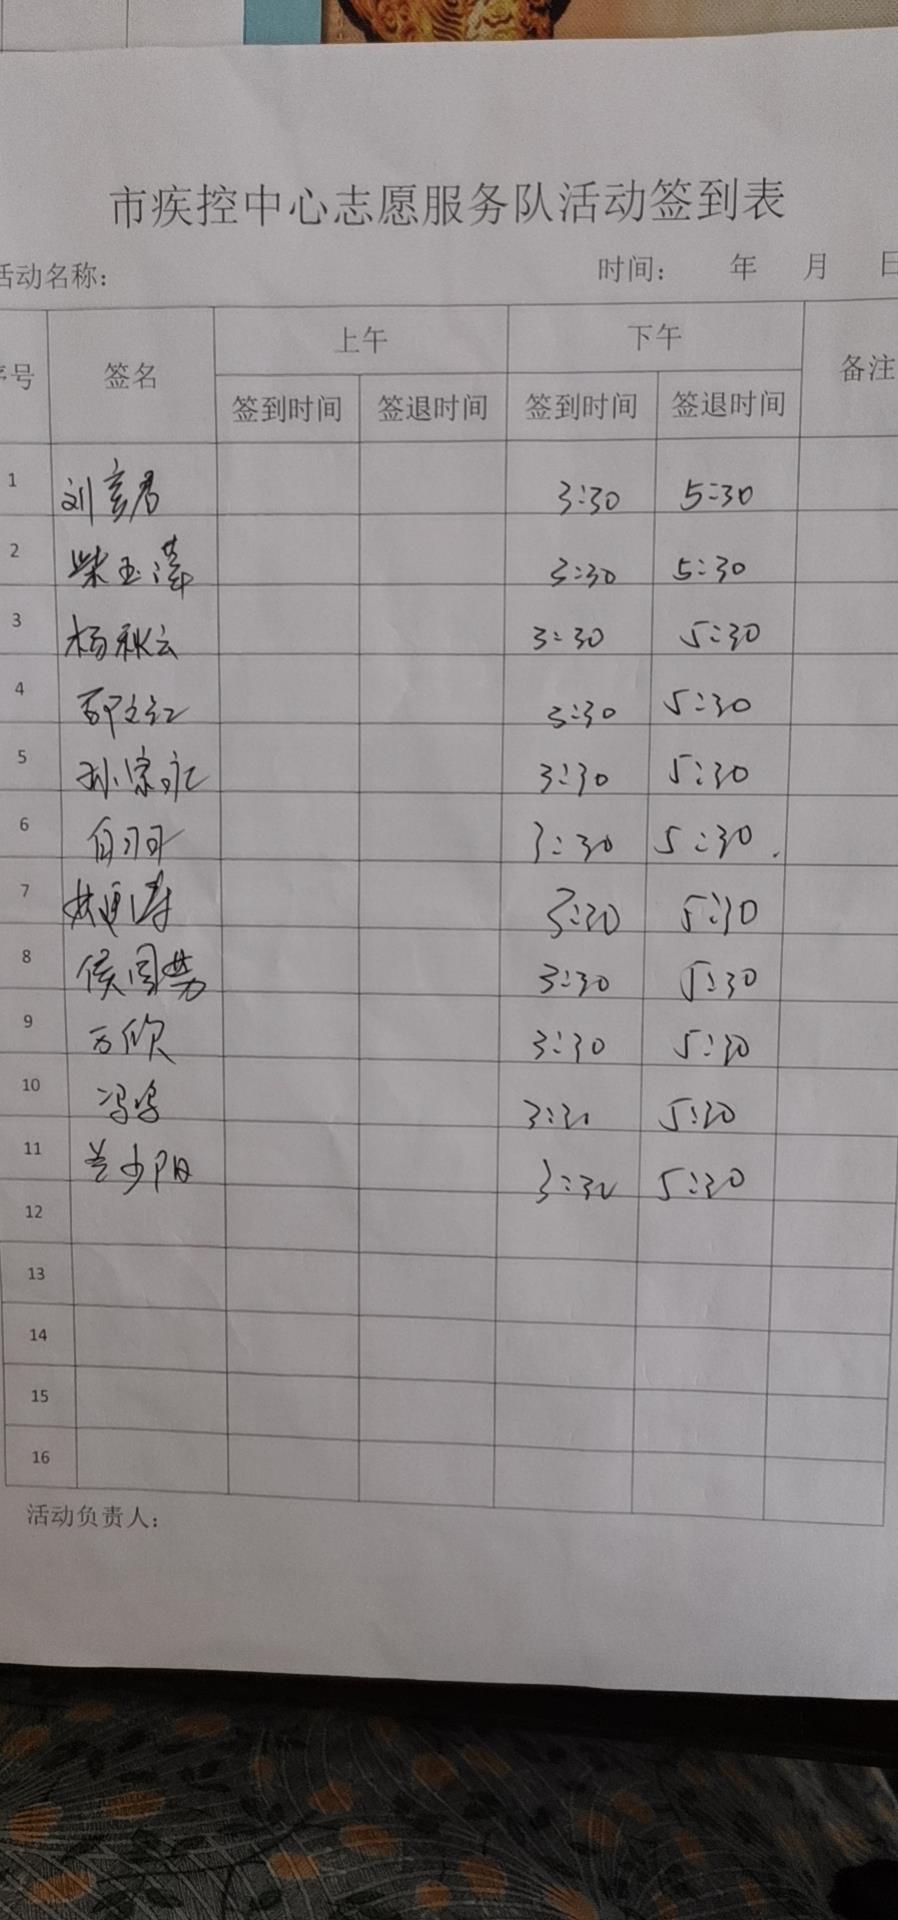 市疾控中心志愿服务队活动签到表
活动名称： 时间： 年 月 日
序号 签名 上午 下午 备注
签到时间 签退时间 签到时间 签退时间
1 刘彦君 3:30 5:30
2 柴玉 3:30 5:30
3 杨秋云 3:30 5:30
4 3:30 5:30
5 孙宗 3:30 5:30
6 3:30 5:30
7 3:30 5:30
8 侯国 3:30 5:30
9 万欣 3:30 5:30
10 冯 3:30 5:30
11 兰少阳 3:30 5:30
12
13
14
15
16
活动负责人：